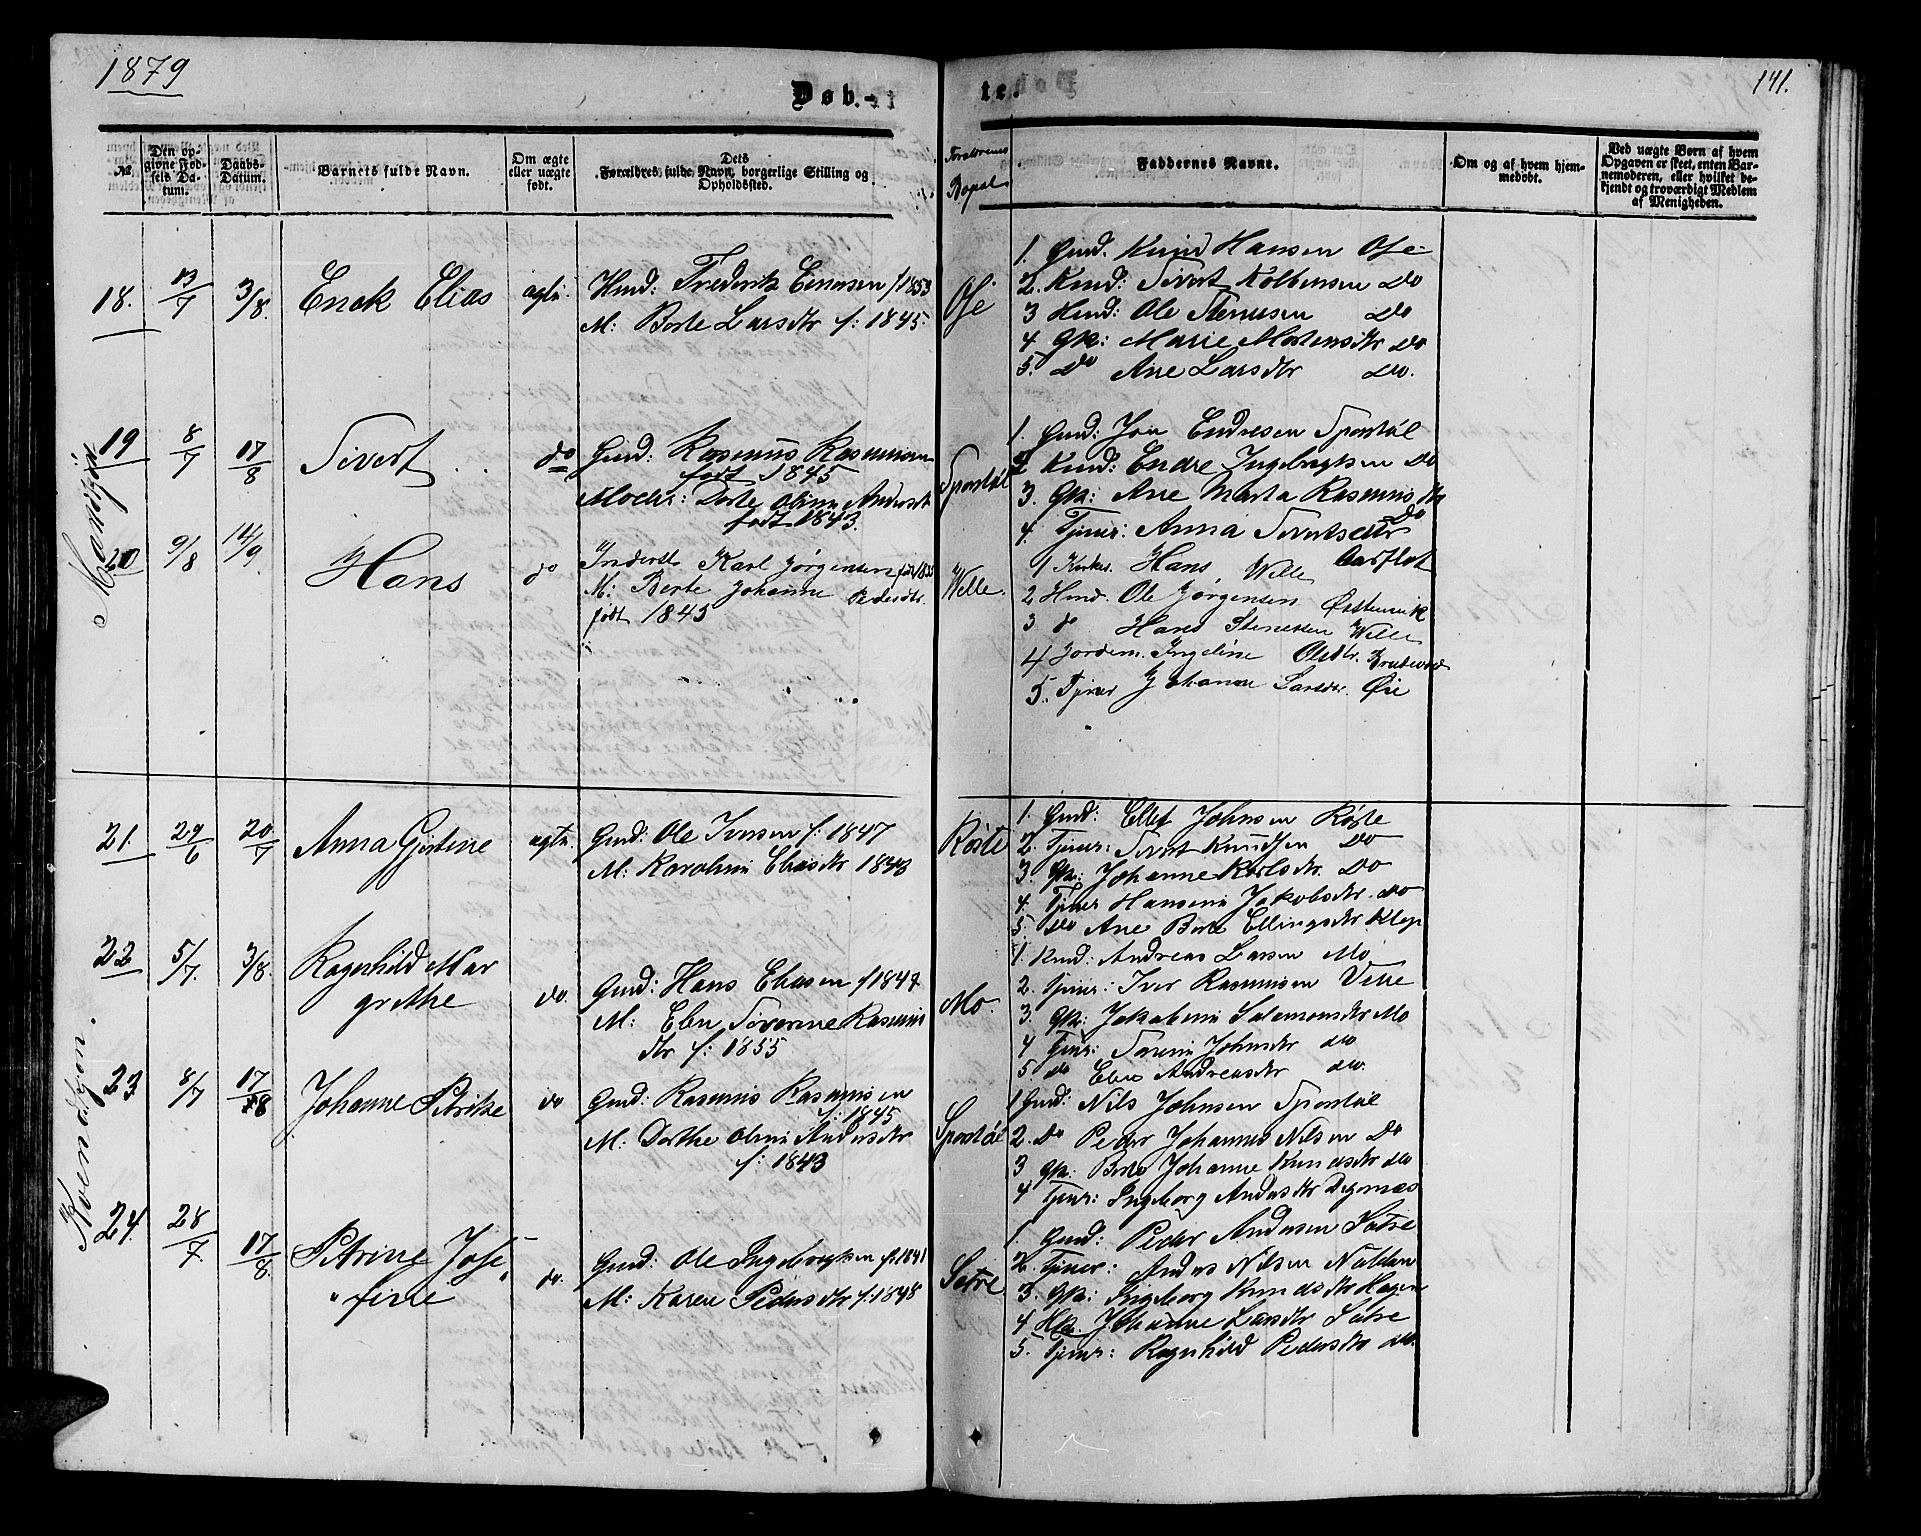 1879
Døb-
te.
141.
№
Den opgivne Fødsels Datum.
Daabs-Datum.
Barnets fulde Navn.
Om ægte eller uægte født.
Dets Forældres fulde Navn, borgerlige Stilling og Opholdssted.
Forældrenes Bopæl
Faddernes Navne.
Om og af hvem hjemmedøbt.
Ved uægte Børn af hvem Opgaven er skeet, enten Barnemoderen, eller hvilket bekjendt og troværdigt Medlem af Menigheden.
Mandkjøn
18. 13/7 3/8. Enok Elias ægte.
Hmd: Frederik Enoksen f 1853
M: Berte Larsdtr f: 1845.
Øie
1. Gmd. Knud Hansen Øie
2. Kmd: Sivert Kolbensen Do
3 Hmd: Ole Stenesen Do
4. Gk: Marie Mortensdtr Do
5. Do Ane Larsdtr Do.
19 8/7 17/8 Sivert do
Gmd: Rasmus Rasmussen
født 1845
Moder: Dorte Oline Andersdt
født 1843.
Sporstøl
1. Gmd: Jon Endresen Sporstøl
2 Kmd: Endre Ingebrigtsen Do
3. Gk: Ane Marta Rasmusdtr
Do
4. Tjener: Anna Sivertsdtr
Aarflot
20 9/8 14/9 Hans do
Inderst Karl Jørgensen
M: Berte Johanne Pedersdtr.
født 1845
Welle.
1 Kirkes. Hans Welle
2 Hmd. Ole Jørgensen Østenvik
3 do Hans Stenesen Welle
4 Jordem. Ingeline Olsdtr.
5. Tjener Johanne Larsdtr. Øie
Kvendkjøn.
21. 29/6 20/7 Anna Gjertine ægte.
Gmd: Ole Iversen f: 1847
M: Karoline Eliasdtr 1848
Røste
1. Gmd: Ellef Johnsen Røste
2. Tjener: Sivert Knudsen Do
3. Gk: Johanne Karlsdtr. Do
4. Tjener Hansine Jakobsdtr. do
5. Do Ane Berte Ellingsdtr. Klep
22 5/7. 3/8. Ragnhild Mar
grethe do.
Gmd: Hans Eliasen f 1847
M: Eben Severine Rasmus
dtr f: 1855
Mo.
1. Kmd: Andreas Larsen Mo
2. Tjener: Iver Rasmussen Velle
3. Gk: Jakobine Salamonsdtr Mo
4 Tjener: Sarine Johnsdtr do
5. do Eben Andreasdtr do.
23 8/7 17/8 Johanne Petrike do
Gmd: Rasmus Rasmussen
f: 1845
M: Dorthe Oline Andersdtr
f: 1843
Sporstøl
1 Gmd: Nils Johnsen Sporstøl
2. Do Peder Johannes Nilsen Do
3 Gk: Berte Johanne Knudsdtr do
4 Tjener: Ingeborg Andersdtr Digernæs
24. 28/7. 17/8. Petrine Jose
"fine do.
Gmd: Ole Ingebrigtsen f. 1841
M: Karen Pedersdtr f: 1848
Sætre
1. Gmd: Peder Andersen Sætre
2. Tjener: Anders Nilsen Nalden
3. Gk: Ingeborg Knudsdtr Hagen
4 Hk. Johanne Larsdtr Sætre
5. Tjener: Ragnhild Pedersdtr do.